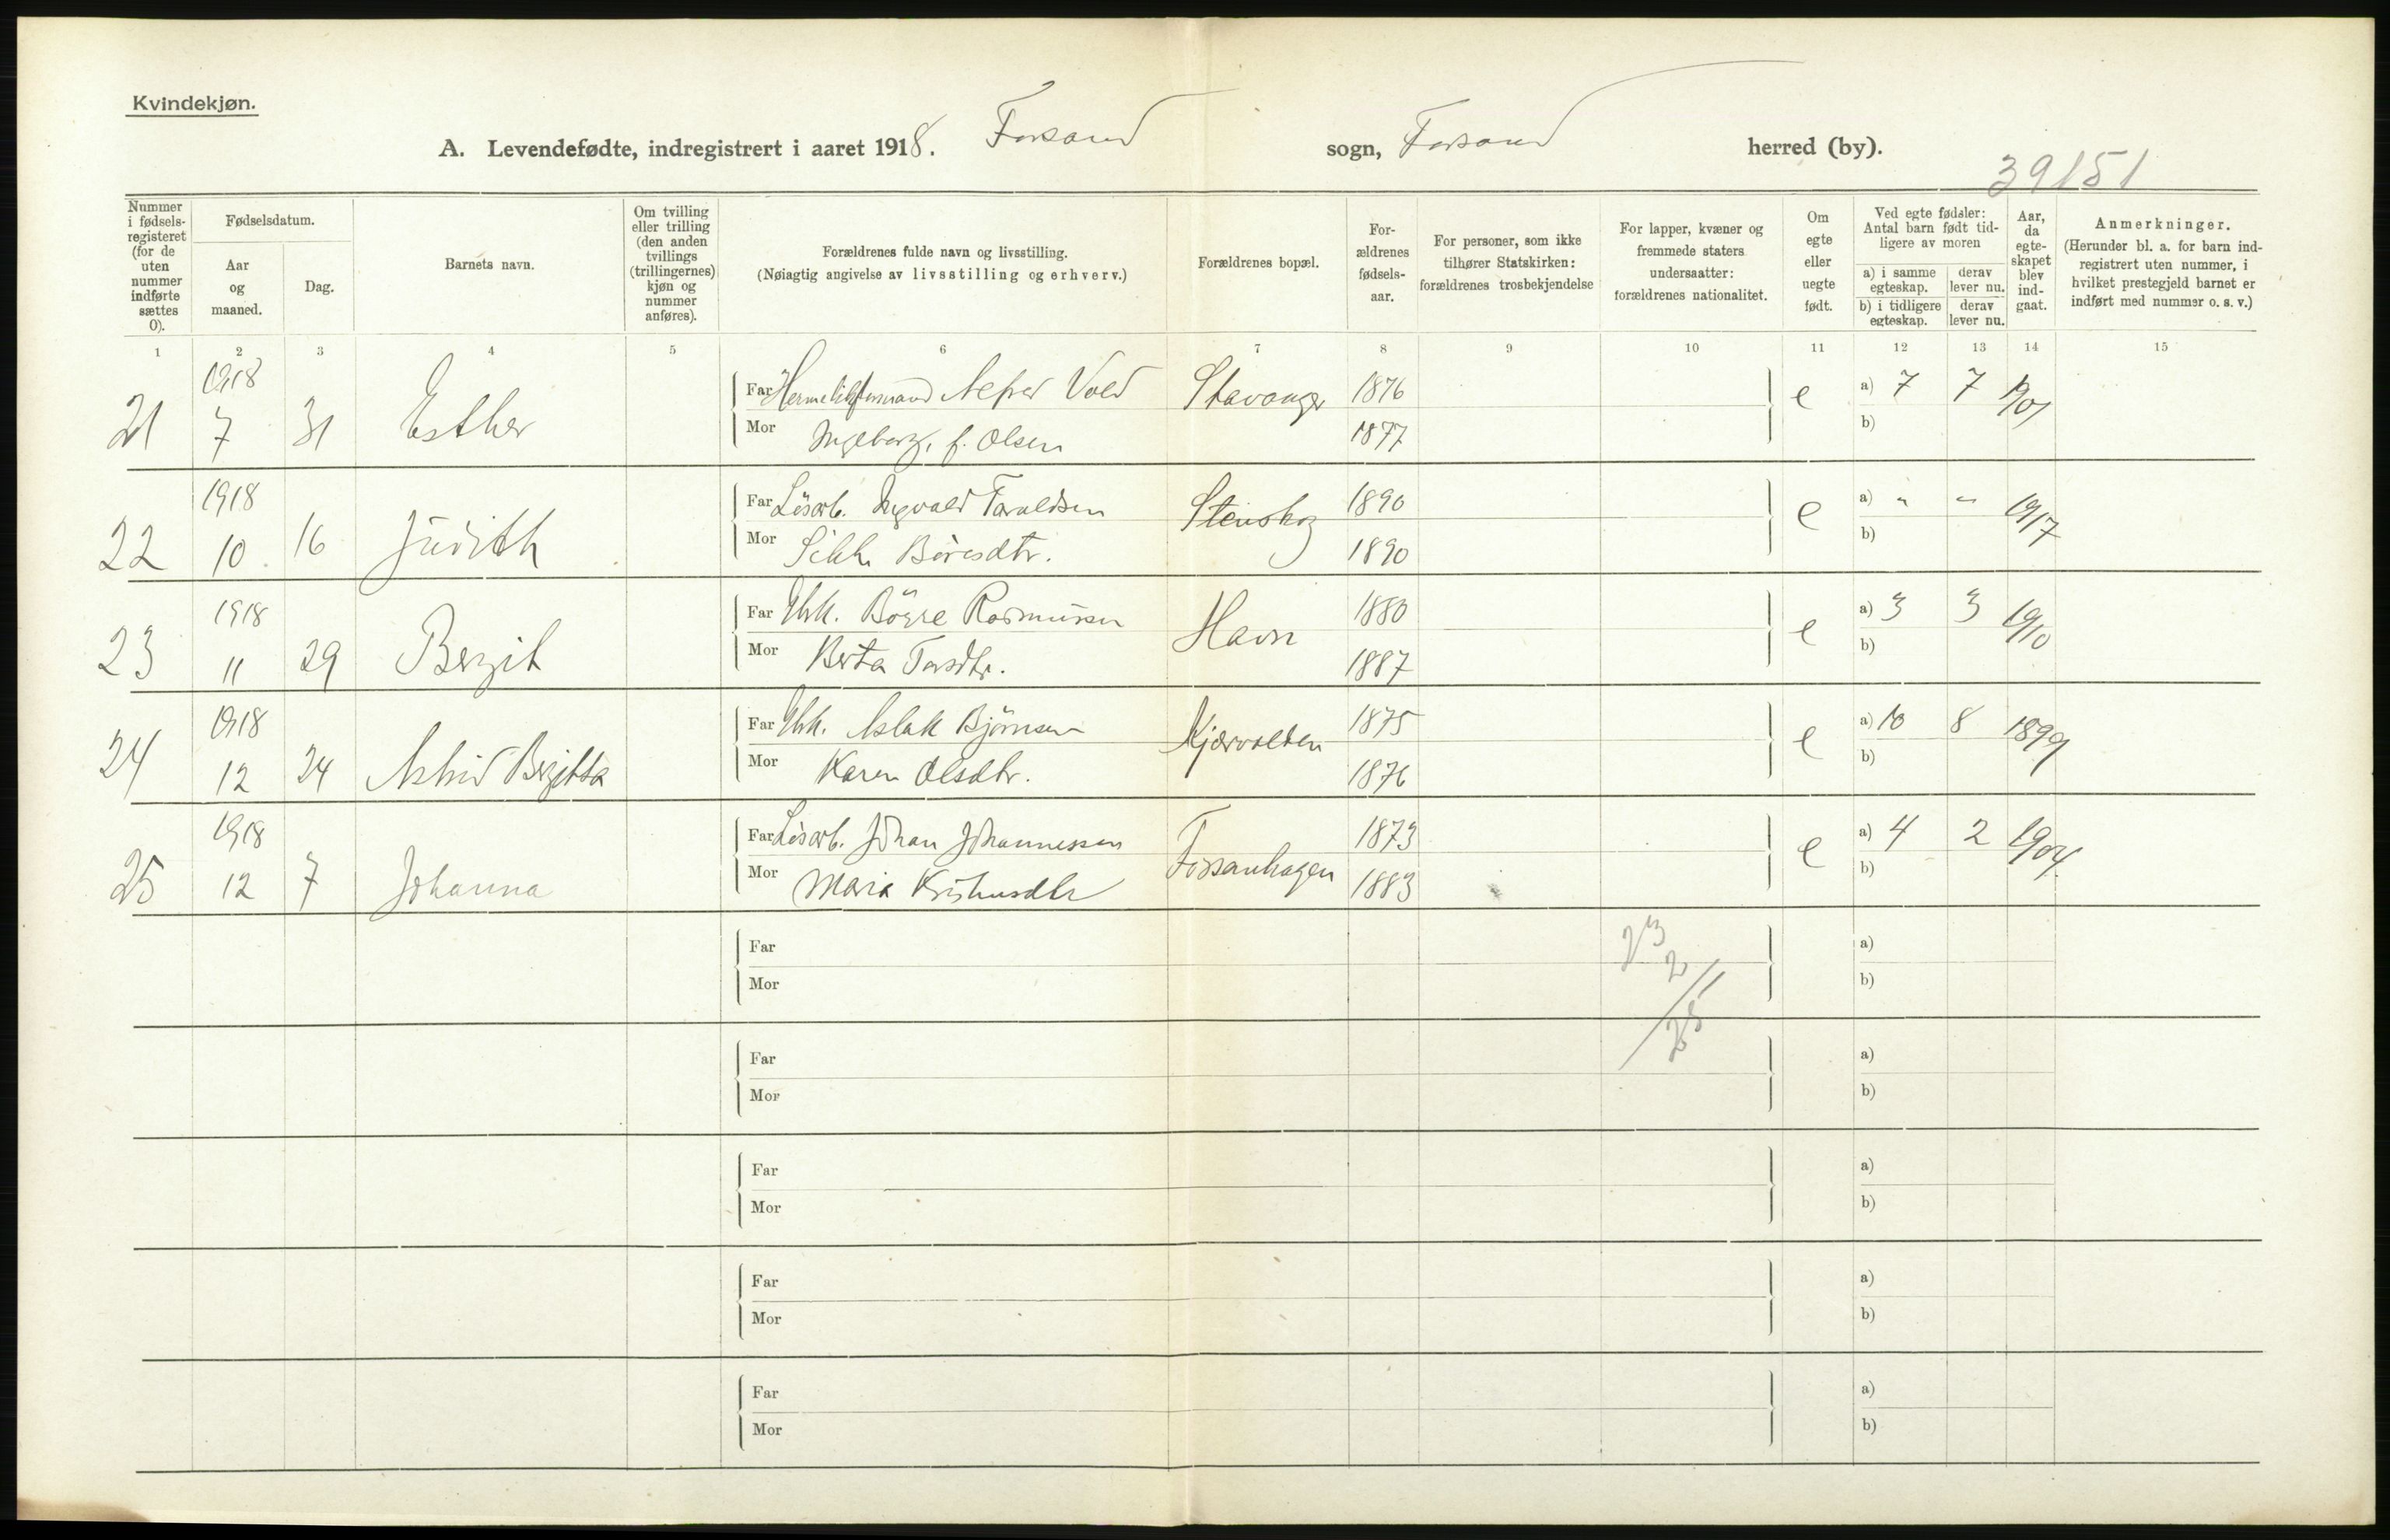 Kvindekjøn.
A. Levendefødte, indregistrert i aaret 1918. Forsand sogn, Forsand herred (by).
39151
Nummer i fødsels-registeret (for de uten nummer indførte sættes 0).
Fødselsdatum.
Aar og maaned.
Dag.
Barnets navn.
Om tvilling eller trilling (den anden tvillings (trillingernes) kjøn og nummer anføres).
Forældrenes fulde navn og livsstilling.
(Nøiagtig angivelse av livsstilling og erhverv.)
Forældrenes bopæl.
For-ældrenes fødsels-aar.
For personer, som ikke tilhører Statskirken: forældrenes trosbekjendelse
For lapper, kvæner og fremmede staters undersaatter: forældrenes nationalitet.
Om egte eller uegte født.
Ved egte fødsler: Antal barn født tid-ligere av moren
a) i samme egteskap.
derav lever nu.
b) i tidligere egteskap.
derav lever nu.
Aar, da egte-skapet blev ind-gaat.
Anmerkninger.
(Herunder bl. a. for barn ind-registrert uten nummer, i hvilket prestegjeld barnet er indført med nummer o. s. v.)
1 2 3 4 5 6 7 8 9 10 11 12 13 14 15
21 1918 7 31 Esther
Far Alfred Vold Stavanger 1876 e a) 7 7 1901
Mor Ingeborg, f. Olsen 1877 b)
22 1918 10 16 Judith
Far Lösarb. Ingvald Taraldsen Stenskog 1890 e a) " " 1917
Mor Böresdtr. 1890 b)
23 1918 11 29 Bergit
Far Börre Rasmussen Havn 1880 e a) 3 3 1910
Mor Berta Torsdtr. 1887 b)
24 1918 12 24 Astrid Bergitta
Far Aslak Björnsen Kjærvolden 1875 e a) 10 8 1899
Mor Karen Olsdtr. 1876 b)
25 1918 12 7 Johanna
Far Lösarb. Johan Johannessen Fossanhagen 1873 e a) 4 2 1904.
Mor Maria 1883 b)
Far a)
Mor b)
23
2
25
Far a)
Mor b)
Far a)
Mor b)
Far a)
Mor b)
Far a)
Mor b)